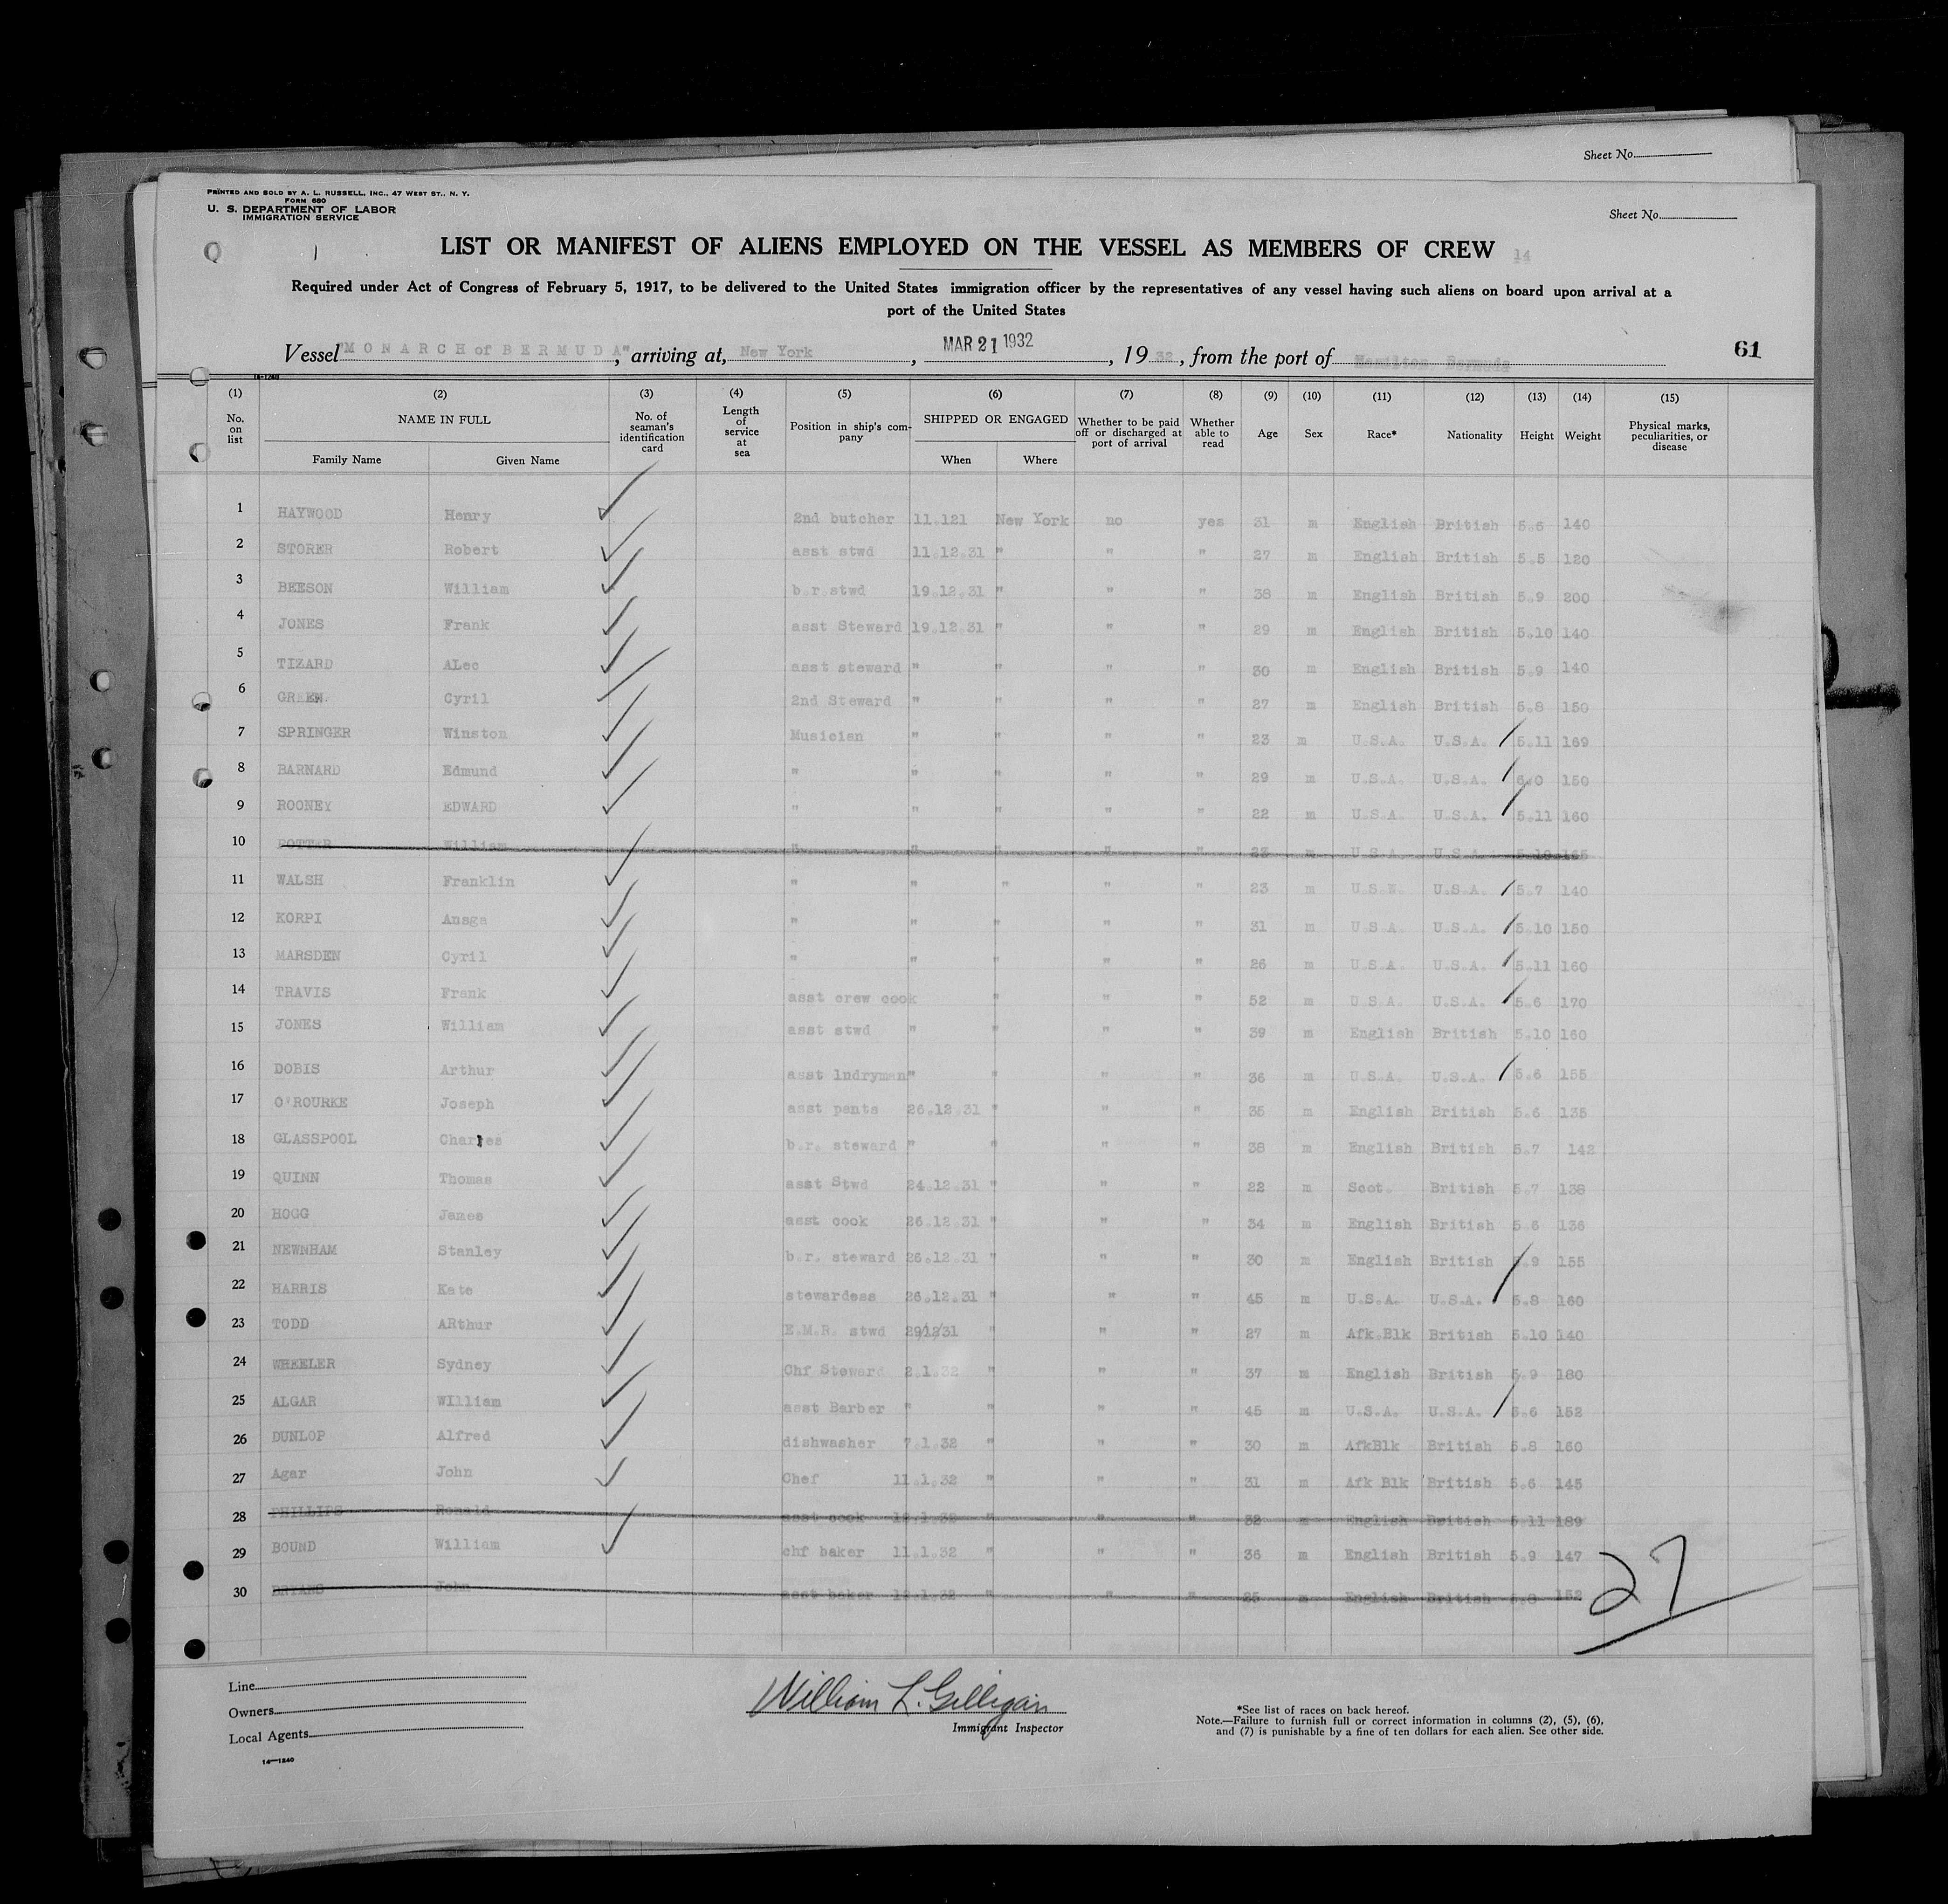 Sheet No.
PRINTED AND SOLD BY A. L. RUSSELL, INC., 47 WEST ST., N. Y.
FORM 680
U. S. DEPARTMENT OF LABOR
IMMIGRATION SERVICE
Sheet No.
LIST OR MANIFEST OF ALIENS EMPLOYED ON THE VESSEL AS MEMBERS OF CREW 14
Required under Act of Congress of February 5, 1917, to be delivered to the United States immigration officer by the representatives of any vessel having such aliens on board upon arrival at a
port of the United States
Vessel "MONARCH of BERMUDA", arriving at, New York, MAR 21 1932, 19 32, from the port of Hamilton Bermuda 61
14-1240
(1) (2) (3) (4) (5) (6) (7) (8) (9) (10) (11) (12) (13) (14) (15)
No. on list NAME IN FULL Family Name Given Name No. of seaman's identification card Length of service at sea Position in ship's company SHIPPED OR ENGAGED When Where Whether to be paid off or discharged at port of arrival Whether able to read Age Sex Race* Nationality Height Weight Physical marks, peculiarities, or disease
1 HAYWOOD Henry 2nd butcher 11.121 New York no yes 31 m English British 5.6 140
2 STORER Robert asst stwd 11.12.31 " " " 27 m English British 5.5 120
3 BEESON William b.r.stwd 19.12.31 " " " 38 m English British 5.9 200
4 JONES Frank asst Steward 19.12.31 " " " 29 m English British 5.10 140
5 TIZARD ALec asst steward " " " " 30 m English British 5.9 140
6 GREEN. Cyril 2nd Steward " " " " 27 m English British 5.8 150
7 SPRINGER Winston Musician " " " " 23 m U.S.A. U.S.A. 5.11 169
8 BARNARD Edmund " " " " " 29 m U.S.A. U.S.A. 6.0 150
9 ROONEY EDWARD " " " " " 22 m U.S.A. U.S.A. 5.11 160
10 POTTER William " " " " " 23 m U.S.A. U.S.A. 5.10 165
11 WALSH Franklin " " " " " 23 m U.S.W. U.S.A. 5.7 140
12 KORPI Ansga " " " " " 31 m U.S.A. U.S.A. 5.10 150
13 MARSDEN Cyril " " " " " 26 m U.S.A. U.S.A. 5.11 160
14 TRAVIS Frank asst crew cook " " " 52 m U.S.A. U.S.A. 5.6 170
15 JONES William asst stwd " " " " 39 m English British 5.10 160
16 DOBIS Arthur asst lndryman " " " " 36 m U.S.A. U.S.A. 5.6 155
17 O'ROURKE Joseph asst pants 26.12.31 " " " 35 m English British 5.6 135
18 GLASSPOOL Charles b.r. steward " " " " 38 m English British 5.7 142
19 QUINN Thomas asst Stwd 24.12.31 " " " 22 m Scot. British 5.7 138
20 HOGG James asst cook 26.12.31 " " " 34 m English British 5.6 136
21 NEWNHAM Stanley b.r. steward 26.12.31 " " " 30 m English British 5.9 155
22 HARRIS Kate stewardess 26.12.31 " " " 45 m U.S.A. U.S.A. 5.8 160
23 TODD ARthur E.M.R. stwd 29/12/31 " " " 27 m Afk.Blk British 5.10 140
24 WHEELER Sydney Chf Steward 2.1.32 " " " 37 m English British 5.9 180
25 ALGAR WIlliam asst Barber " " " " 45 m U.S.A. U.S.A. 5.6 152
26 DUNLOP Alfred dishwasher 7.1.32 " " " 30 m AfkBlk British 5.8 160
27 Agar John Chef 11.1.32 " " " 31 m Afk Blk British 5.6 145
28 PHILLIPS Ronald asst cook 12.1.32 " " " 32 m English British 5.11 189
29 BOUND William chf baker 11.1.32 " " " 36 m English British 5.9 147
30 John asst baker 12.1.32 " " " 25 m English British 5.8 152
27
Line
Owners
Local Agents
14-1240
William L. Gilligan
Immigrant Inspector
*See list of races on back hereof.
Note.—Failure to furnish full or correct information in columns (2), (5), (6),
and (7) is punishable by a fine of ten dollars for each alien. See other side.